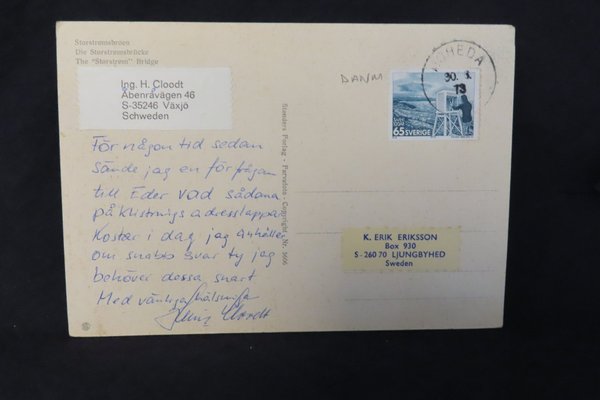 Storstrømsbroen
Die Storstrømsbrücke
The "Storstrøm" Bridge
Ing. H. Cloodt
Åbenråvägen 46
S-35246 Växjö
Schweden
För någon tid sedan
sände jag en förfrågan
till Eder vad sådana
påklistrings adresslappar
Kostar i dag, jag Anhåller
om snabbt svar ty jag
behöver dessa snart
Med vänliga hälsningar
Cloodt
Stenders Forlag - Eneret - Copyright Nr. 5666
DANM
30. 1.
73
65 SVERIGE
K. ERIK ERIKSSON
Box 930
S-260 70 LJUNGBYHED
Sweden